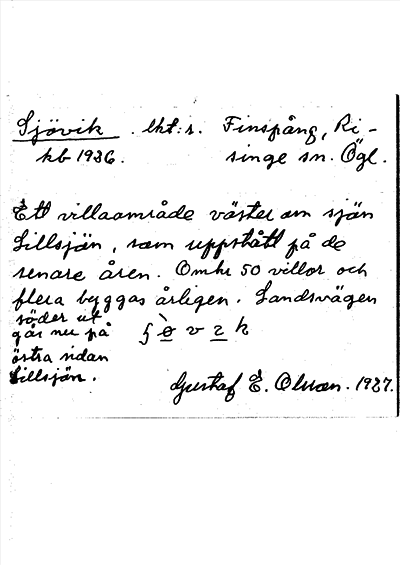 Sjövik . lht: s. Finspång, Ri-
kb 1936. singe sn. Ögl.
Ett villaområde väster om sjön
Lillsjön, som uppstått på de
senare åren. Omkr 50 villor och
flera byggas årligen. Landsvägen
söder ut
går nu på
östra sidan
Lillsjön.
Gustaf E. Olsson. 1937.